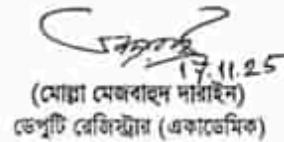 17.11.25
(মোল্লা মেজবাহুদ দারাইন)
ডেপুটি রেজিস্ট্রার (একাডেমিক)